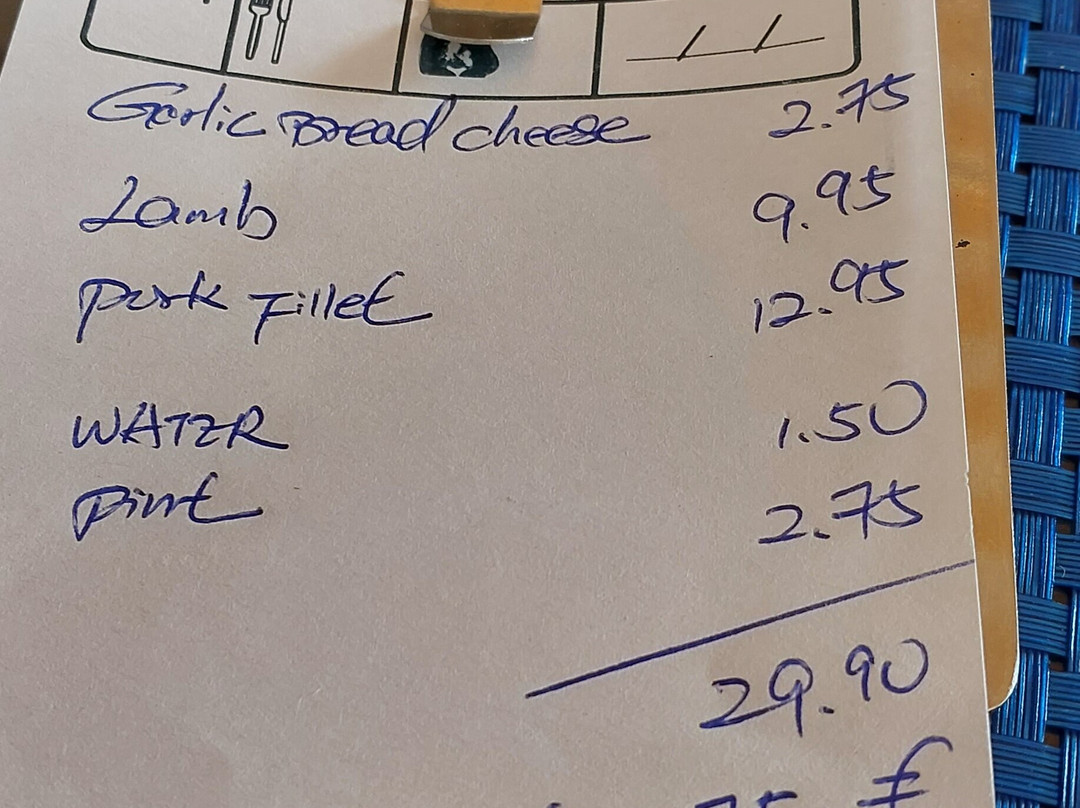 Garlic Bread cheese 2.75
Lamb 9.95
Pork Fillet 12.95
WATER 1.50
Pint 2.75
29.90
£